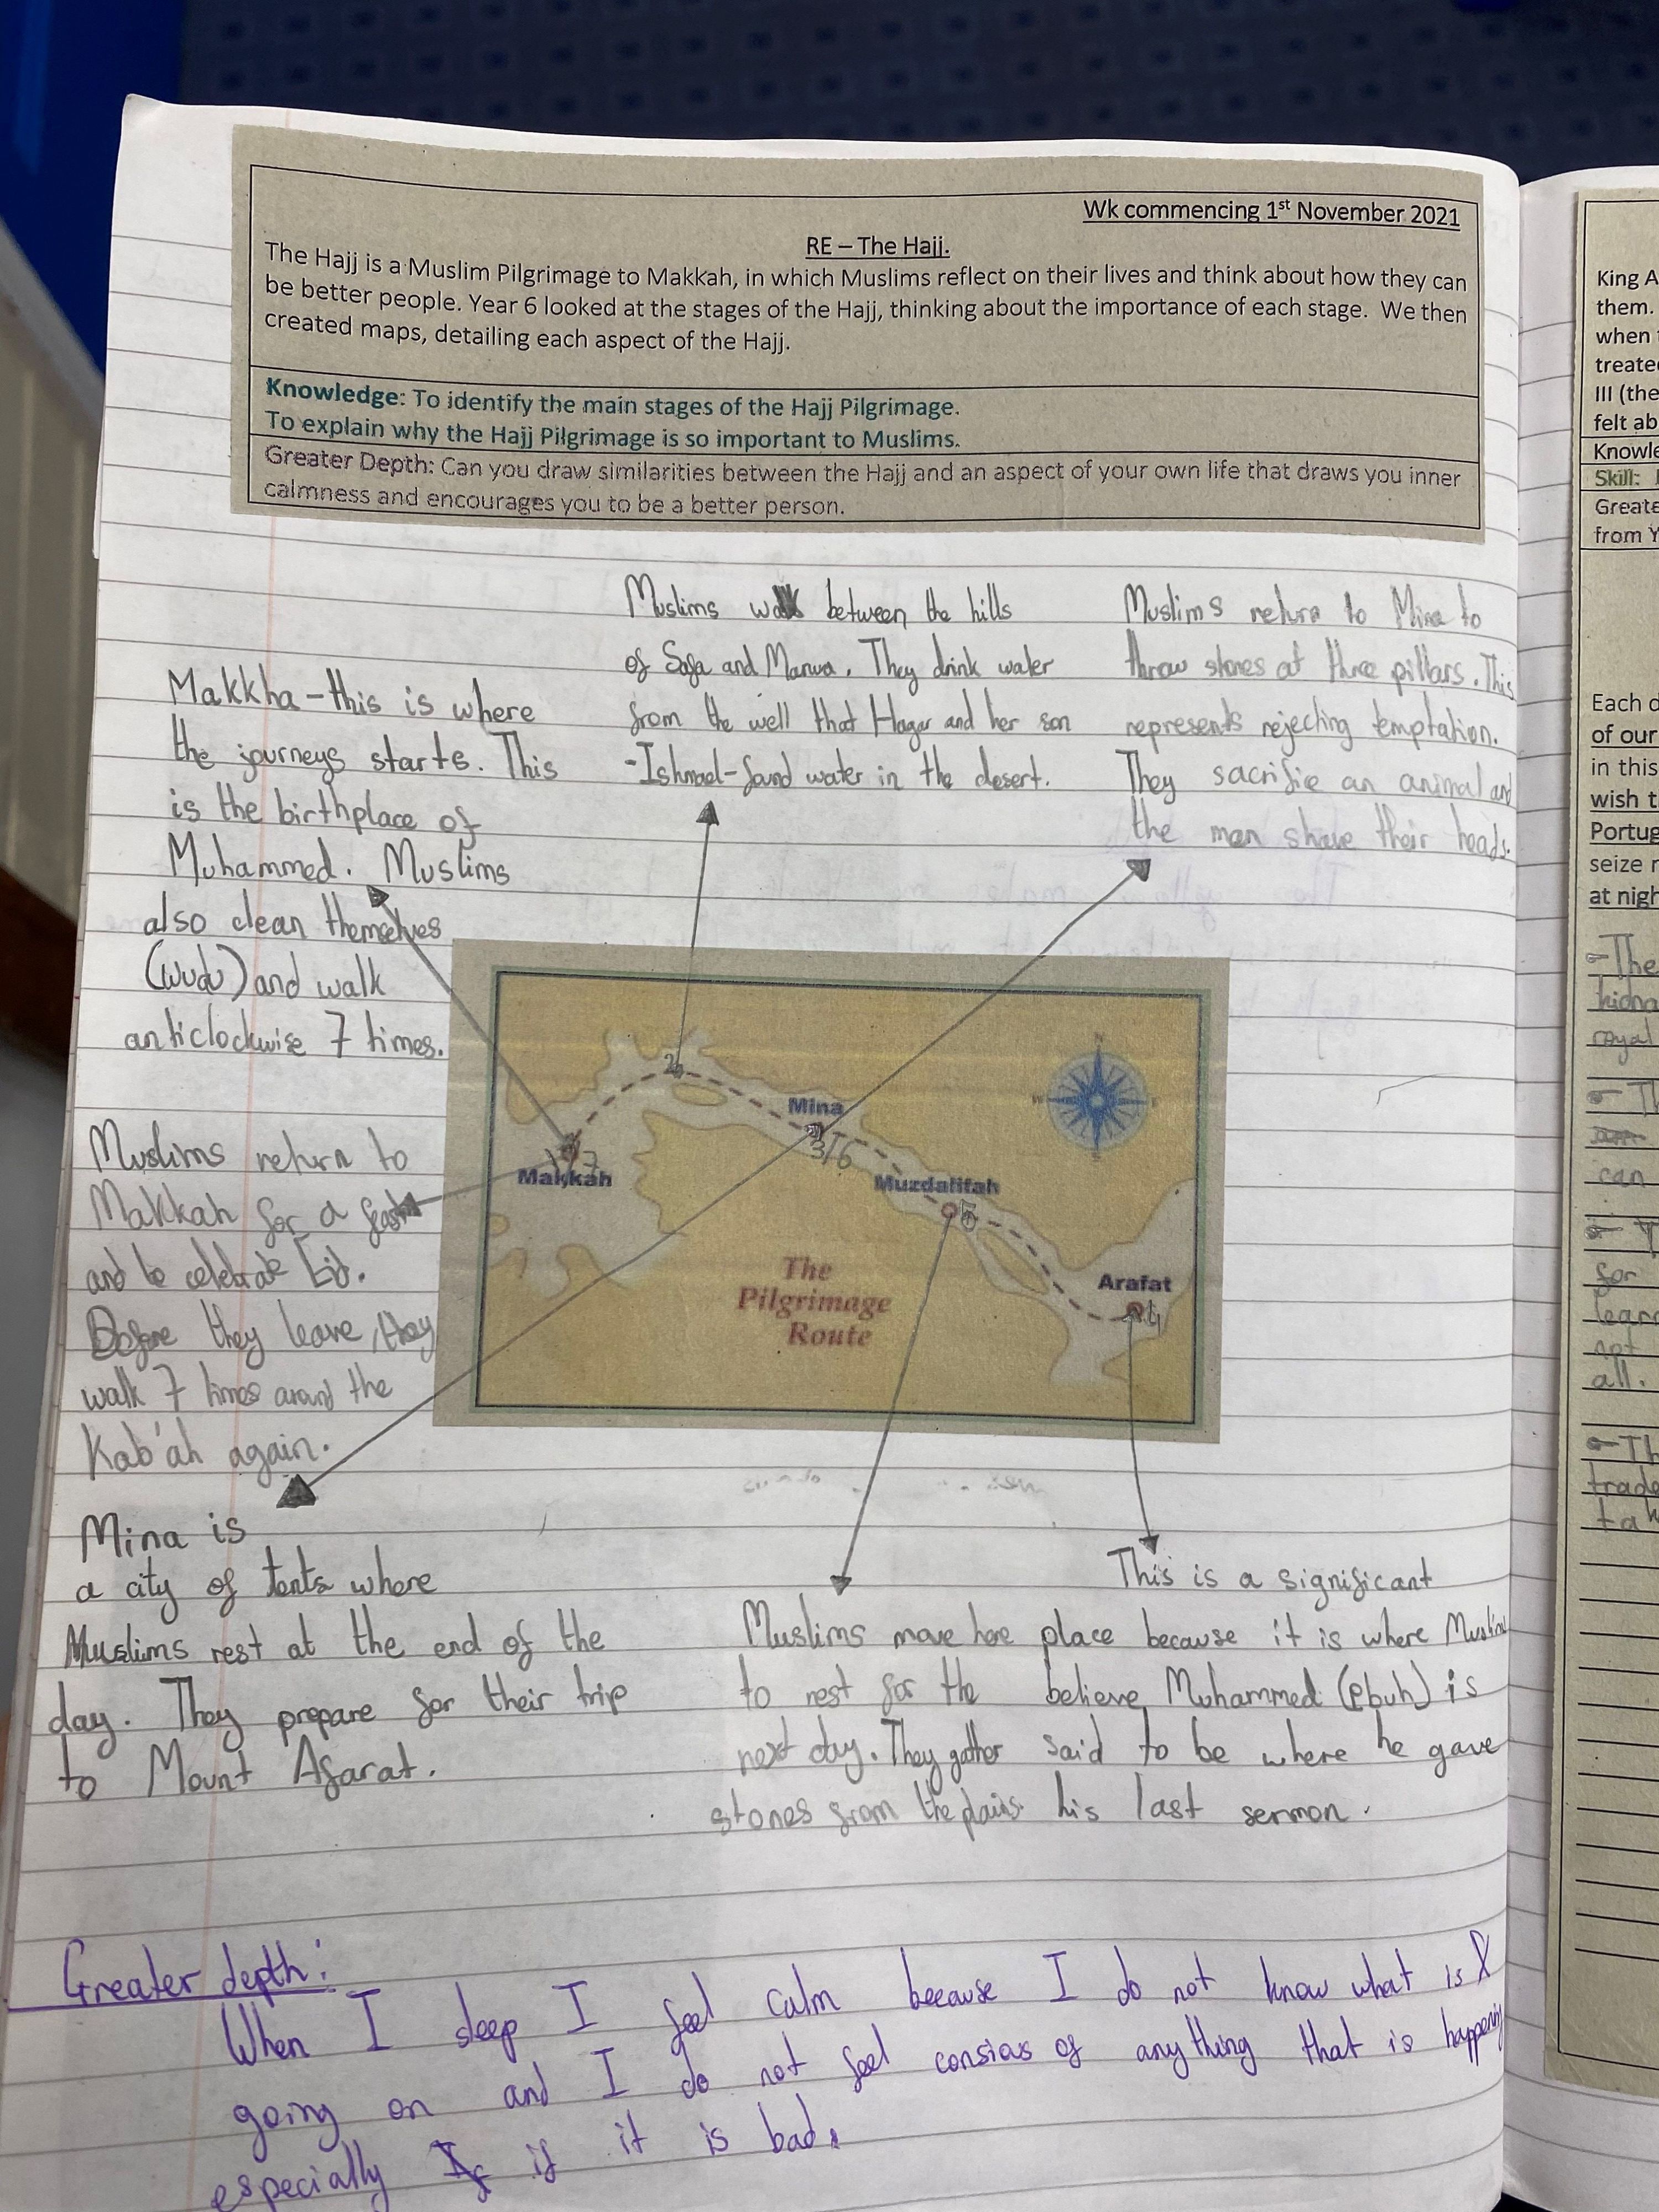 Wk commencing 1st November 2021
RE – The Hajj.
The Hajj is a Muslim Pilgrimage to Makkah, in which Muslims reflect on their lives and think about how they can
be better people. Year 6 looked at the stages of the Hajj, thinking about the importance of each stage. We then
created maps, detailing each aspect of the Hajj.
Knowledge: To identify the main stages of the Hajj Pilgrimage.
To explain why the Hajj Pilgrimage is so important to Muslims.
Greater Depth: Can you draw similarities between the Hajj and an aspect of your own life that draws you inner
calmness and encourages you to be a better person.
Makkha – this is where
the journeys starts. This
is the birthplace of
Muhammed. Muslims
also clean themselves
(wudu) and walk
anticlockwise 7 times.
Muslims walk between the hills
of Safa and Marwa. They drink water
from the well that Hagar and her son
-Ishmael- found water in the desert.
Muslims return to Mina to
throw stones at three pillars. This
represents rejecting temptation.
They sacrifice an animal and
the men shave their heads.
Muslims return to
Makkah for a feast
and be celebrate Eid.
Before they leave, they
walk 7 times around the
Kab'ah again.
2
Mina
3/6
Makkah
1/7
Muzdalifah
5
Arafat
4
The
Pilgrimage
Route
N
W
E
S
Mina is
a city of tents where
Muslims rest at the end of the
day. They prepare for their trip
to Mount Afarat.
Muslims move here
to rest for the
next day. They gather
stones from the plains.
This is a significant
place because it is where Muslims
believe Muhammed (pbuh) is
said to be where he gave
his last sermon.
Greater depth:
When I sleep I feel calm because I do not know what is
going on and I do not feel consious of anything that is happening
especially If if it is bad.
King A
them.
when
treate
III (the
felt ab
Knowle
Skill:
Greate
from Y
Each d
of our
in this
wish t
Portug
seize
at nigh
The
kidna
royal
Th
can
for
learn
not
all.
Th
trade